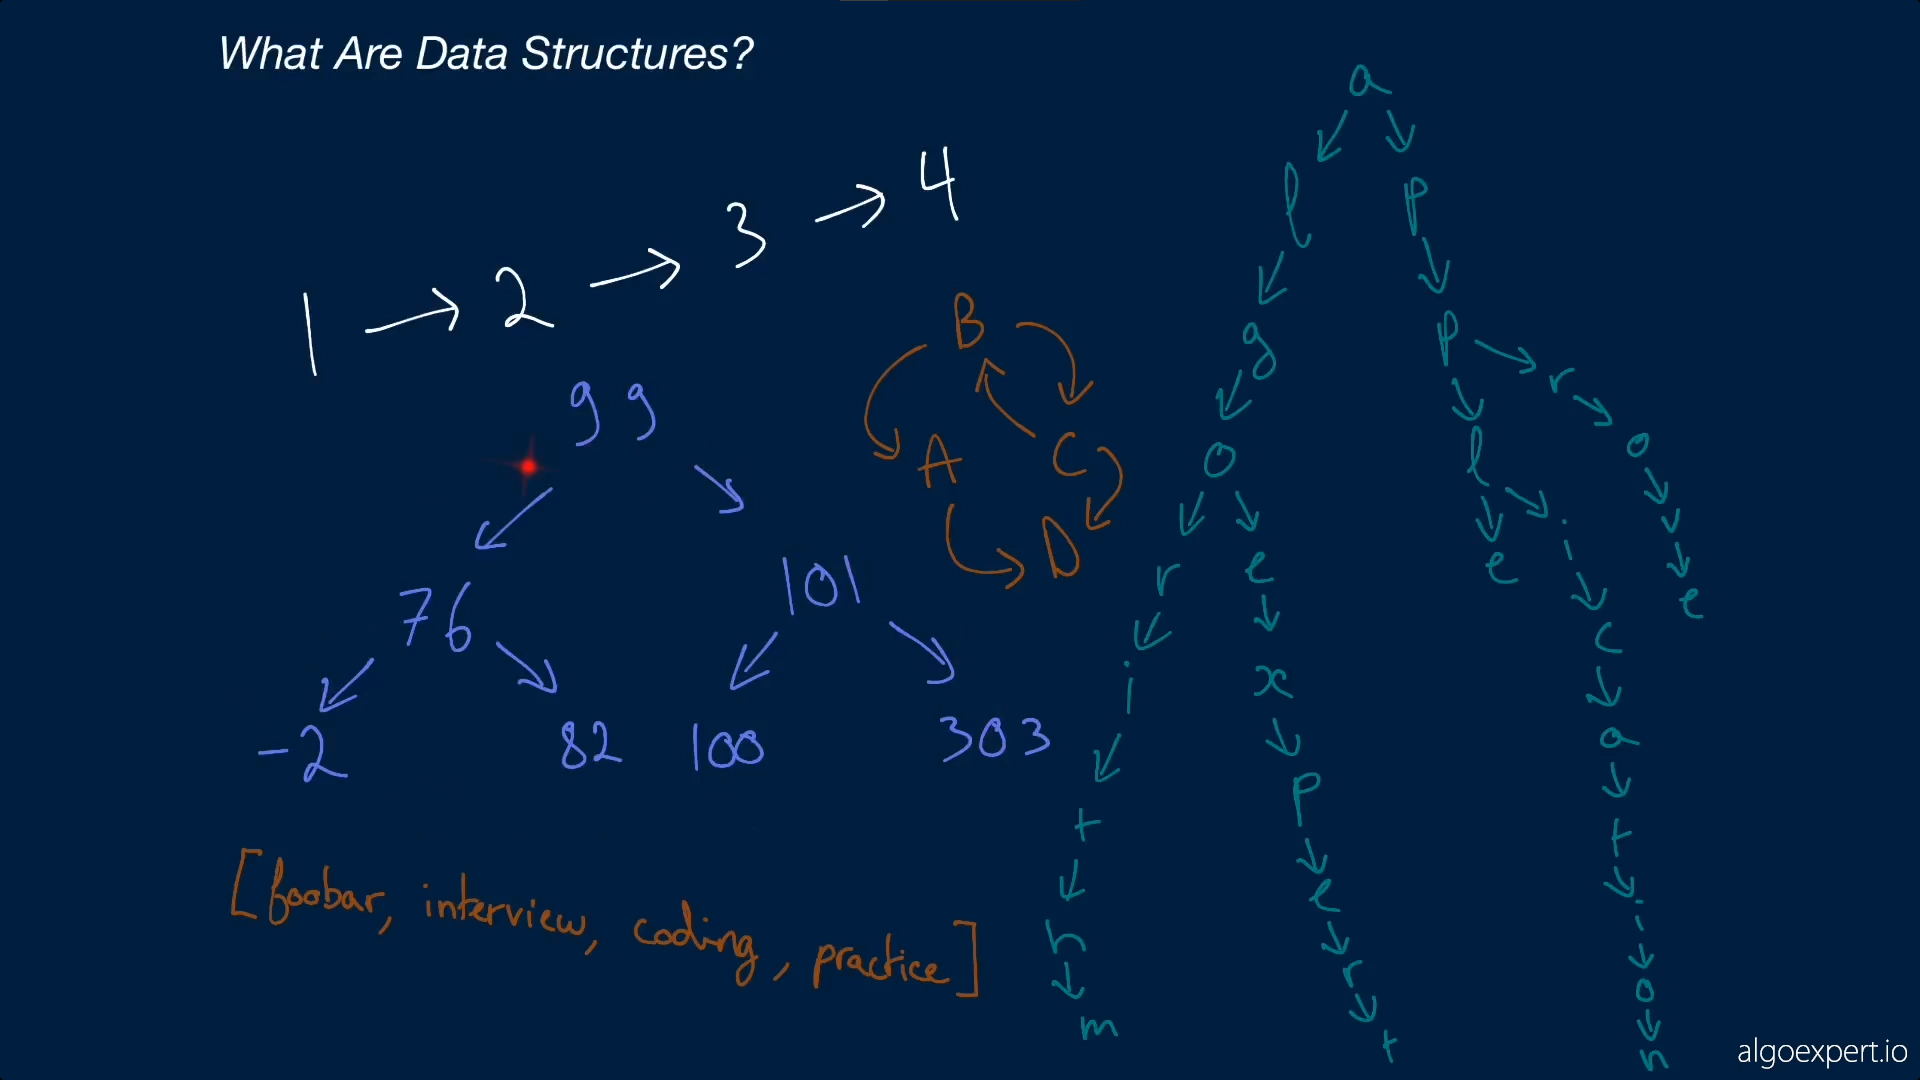 What Are Data Structures?
1 → 2 → 3 → 4
99
76 101
-2 82 100 303
B
A C
D
[foobar, interview, coding, practice]
a
l p
g p r
o l o
r e e i v
i x c e
t p a
h e t
m r i
t o
n
algoexpert.io